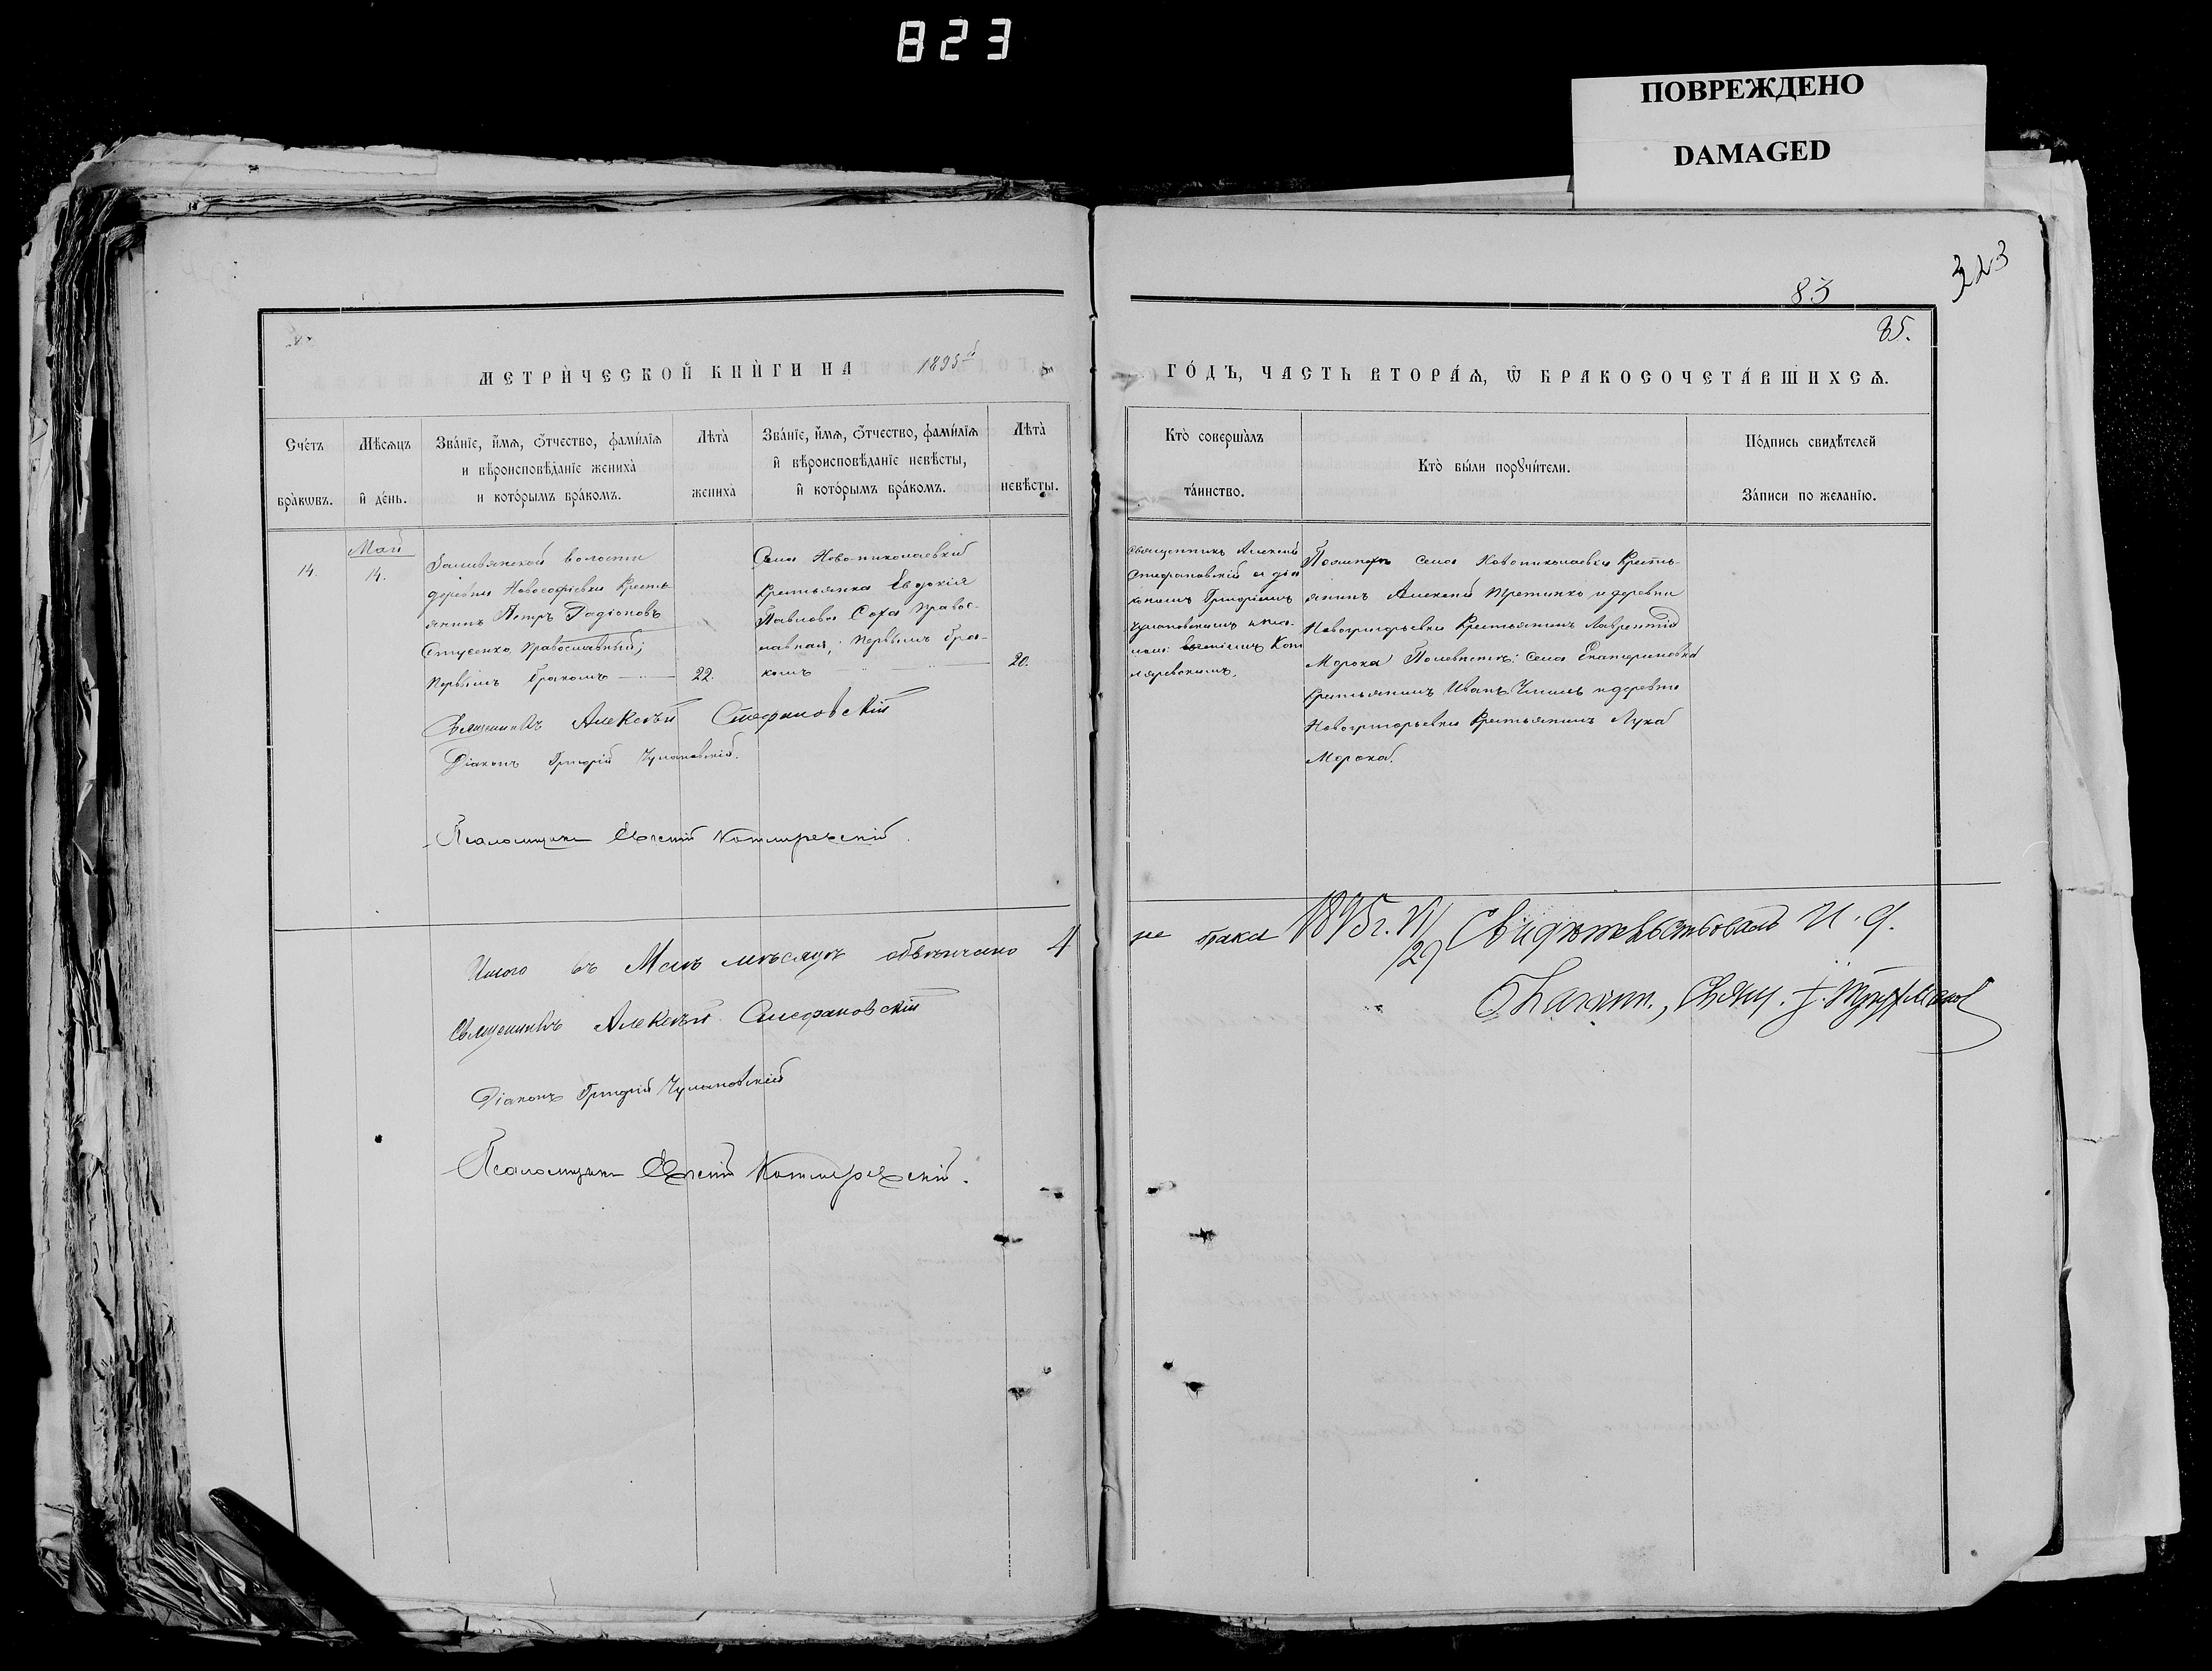 823
ПОВРЕЖДЕНО
DAMAGED
323
83
85.
МЕТРИ́ЧЕСКОЙ КНИ́ГИ НА 1895й
ГО́ДЪ, ЧАСТЬ ВТОРА́Ѧ, Ѿ БРАКОСОЧЕТА́ВШИХСѦ.
Сче́тъ бра́кѡвъ.
Мѣ́сѧцъ и҆ де́нь.
Зва́нїе, и҆́мѧ, ѻ҆́тчество, фами́лїѧ
и вѣроисповѣ́данїе жениха̀
и кото́рымъ бра́комъ.
Лѣта̀ жениха̀
Зва́нїе, и҆́мѧ, ѻ҆́тчество, фами́лїѧ
и҆ вѣроисповѣ́данїе невѣ́сты,
и҆ кото́рымъ бра́комъ.
Лѣта̀ невѣ́сты.
Кто̀ соверша̀лъ та́инство.
Кто̀ бы́ли порꙋчи́тели.
По́дпись свидѣ́телей
За́писи по жела́нїю.
Май
14.
14.
волости
деревни Новософіевки Кресть-
янинъ Петръ Радіоновъ
Стусенко, православный;
первымъ бракомъ
22.
Села Новониколаевки
Крестьянка Евдокія
Павлова Соха правос-
лавная, первымъ бра-
комъ
20.
Священникъ Алексѣй
Стефановскій съ діа
кономъ Григоріемъ
Чулановскимъ и пса-
лом: Евгеніемъ Кот
ляревскимъ.
По женихѣ села Новониколаевки Кресть-
янинъ Алексей и деревни
Новогригорьевки Крестьянинъ Лаврентій
Морока По невѣстѣ: села Екатериновки
Крестьянинъ Иванъ и деревни
Новогригорьевки Крестьянинъ Лука
Морока.
Священникъ Алексѣй Стефановскій
Діаконъ Григорій Чулановскій.
Псаломщикъ Евгеній Котляревскій.
Итого въ Маѣ мѣсяцѣ обвѣнчано 4
ре брака
1895 г. VI/29 Свидѣтельствовалъ И. д.
Благочин., Свящ. І.
Священникъ Алексѣй Стефановскій
Діаконъ Григорій Чулановскій
Псаломщикъ Евгеній Котляревскій.